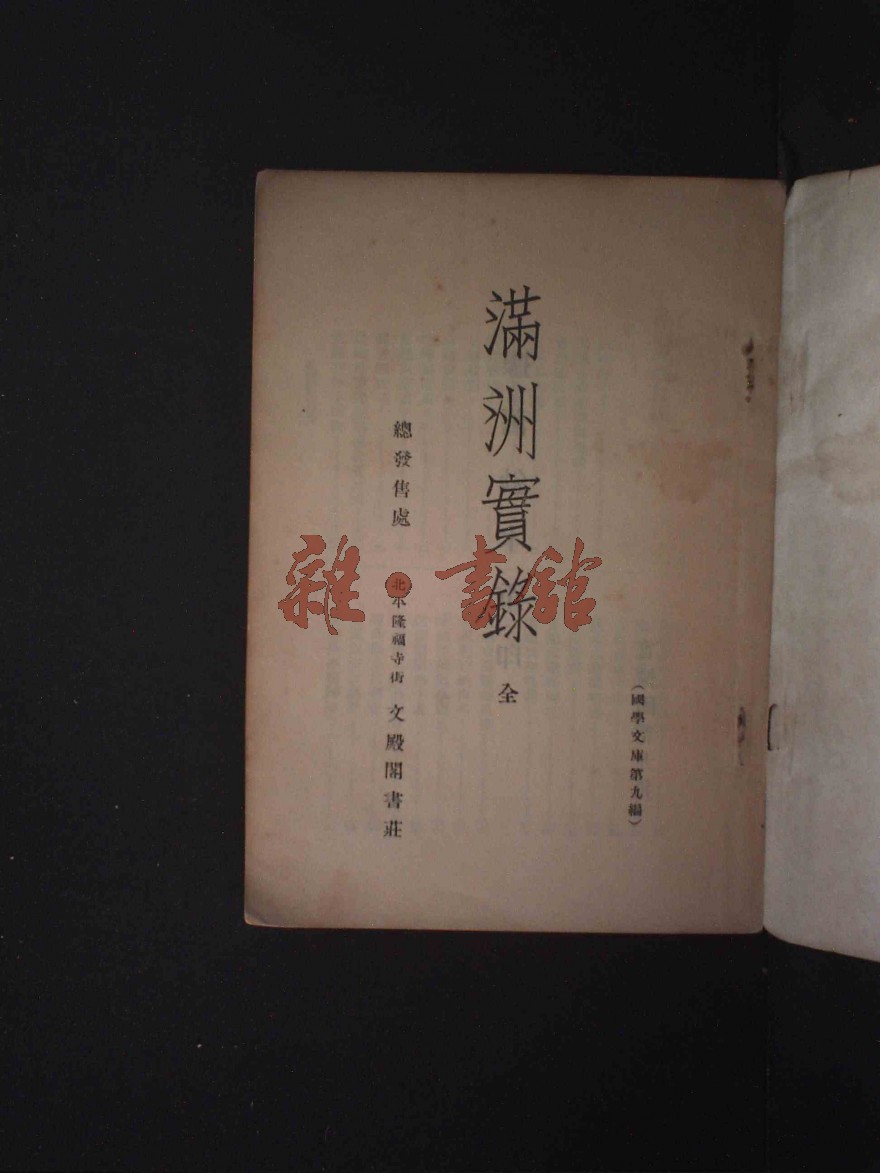 （國學文庫第九編）
滿洲實錄 全
總發售處 北平隆福寺街 文殿閣書莊
雜·書館